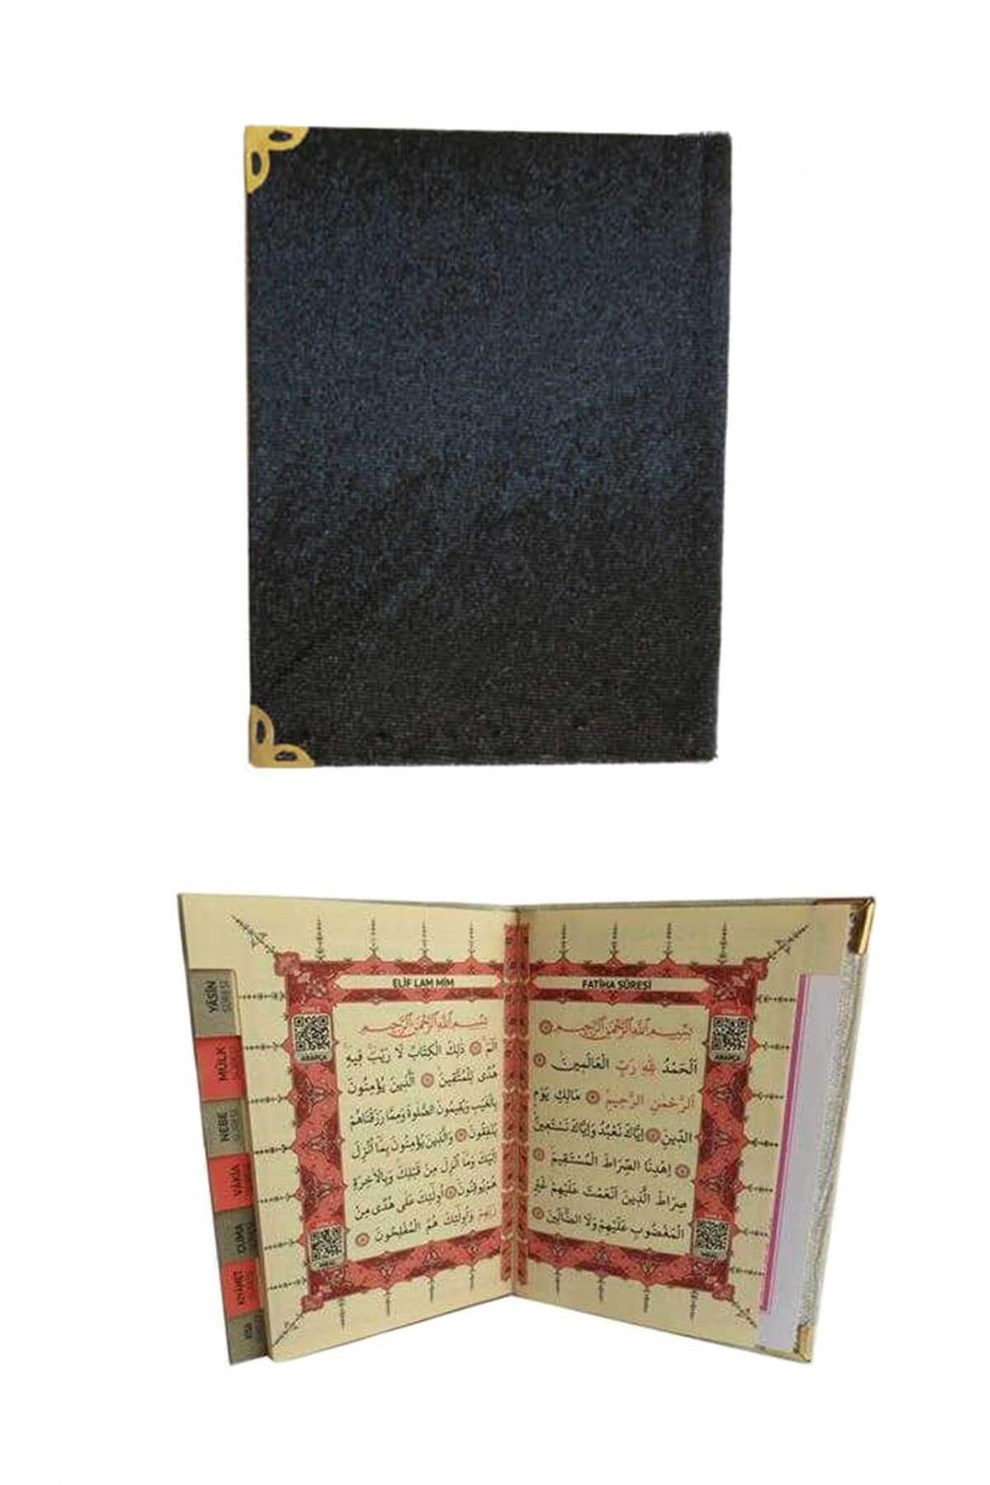 FATİHA SÛRESİ
بِسْمِ اللّٰهِ الرَّحْمٰنِ الرَّحِيمِ ۝
اَلْحَمْدُ لِلّٰهِ رَبِّ الْعَالَمِينَ ۝
اَلرَّحْمٰنِ الرَّحِيمِ ۝ مَالِكِ يَوْمِ
الدِّينِ ۝ اِيَّاكَ نَعْبُدُ وَاِيَّاكَ نَسْتَعِينُ
۝ اِهْدِنَا الصِّرَاطَ الْمُسْتَقِيمَ ۝
صِرَاطَ الَّذِينَ اَنْعَمْتَ عَلَيْهِمْ غَيْرِ
الْمَغْضُوبِ عَلَيْهِمْ وَلَا الضَّالِّينَ ۝
ELİF LAM MİM
بِسْمِ اللّٰهِ الرَّحْمٰنِ الرَّحِيمِ
الٓمٓ ۝ ذٰلِكَ الْكِتَابُ لَا رَيْبَ فِيهِ
هُدًى لِلْمُتَّقِينَ ۝ اَلَّذِينَ يُؤْمِنُونَ
بِالْغَيْبِ وَيُقِيمُونَ الصَّلٰوةَ وَمِمَّا رَزَقْنَاهُمْ
يُنْفِقُونَ ۝ وَالَّذِينَ يُؤْمِنُونَ بِمَٓا اُنْزِلَ
اِلَيْكَ وَمَٓا اُنْزِلَ مِنْ قَبْلِكَ وَبِالْاٰخِرَةِ
هُمْ يُوقِنُونَ ۝ اُولٰٓئِكَ عَلٰى هُدًى مِنْ
رَبِّهِمْ وَاُولٰٓئِكَ هُمُ الْمُفْلِحُونَ ۝
ARAPÇA
YÂSİN SÛRESİ
MÜLK
NEBE SÛRESİ
VAKIA
CUMA
KIYAMET